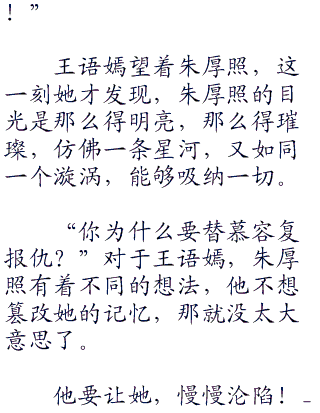 ！”
王语嫣望着朱厚照，这
一刻她才发现，朱厚照的目
光是那么得明亮，那么得璀
璨，仿佛一条星河，又如同
一个漩涡，能够吸纳一切。
“你为什么要替慕容复
报仇？”对于王语嫣，朱厚
照有着不同的想法，他不想
篡改她的记忆，那就没太大
意思了。
他要让她，慢慢沦陷！_